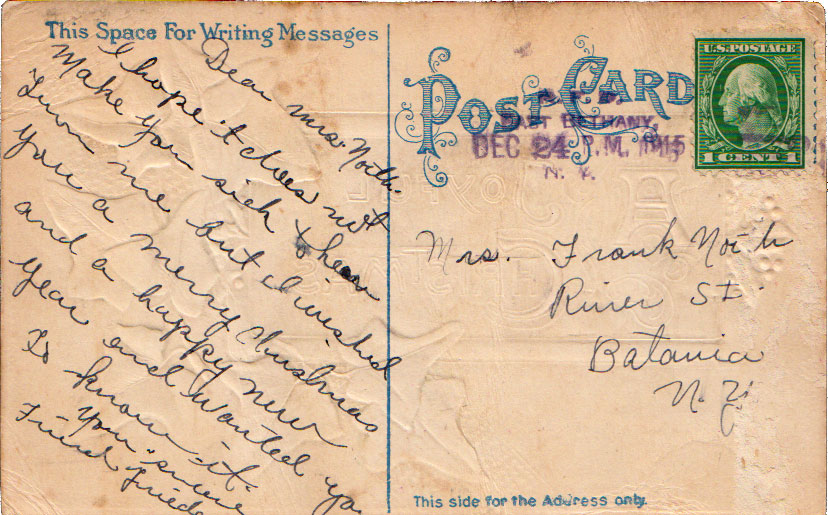 This Space For Writing Messages
Dear Mrs. North.
I hope it does not
make you sick to hear
from me but I wished
you a merry Christmas
and a happy new
year and wanted you
to know it.
Your sincere
Friend
POST CARD
EAST BETHANY,
DEC 24 P.M. 1915
N. Y.
U.S. POSTAGE
1 CENT 1
Mrs. Frank North
River St.
Batavia
N. Y.
This side for the Address only.